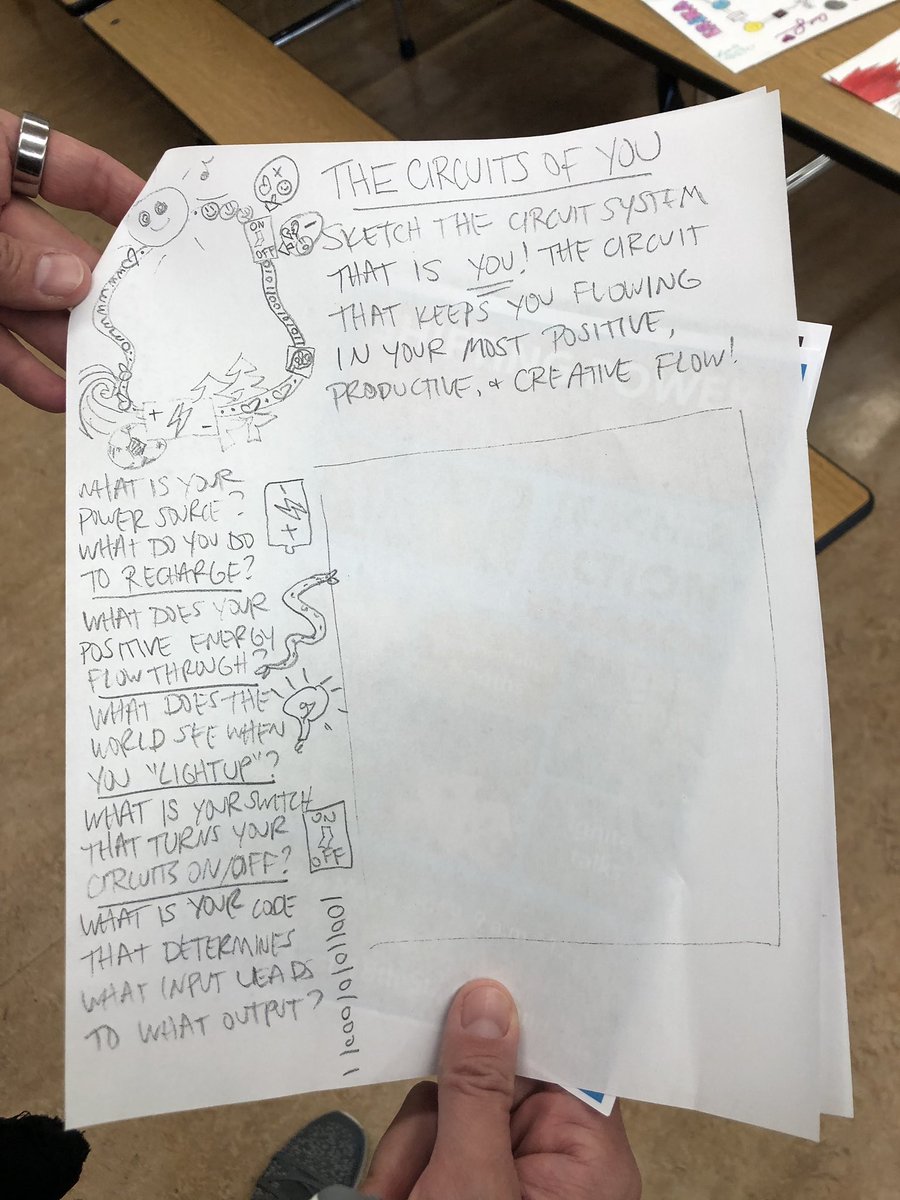 THE CIRCUITS OF YOU
SKETCH THE CIRCUIT SYSTEM
THAT IS YOU! THE CIRCUIT
THAT KEEPS YOU FLOWING
IN YOUR MOST POSITIVE,
PRODUCTIVE, + CREATIVE FLOW!
ON
OFF
+
-
WHAT IS YOUR
POWER SOURCE?
WHAT DO YOU DO
TO RECHARGE?
-
+
WHAT DOES YOUR
POSITIVE ENERGY
FLOW THROUGH?
WHAT DOES THE
WORLD SEE WHEN
YOU "LIGHT UP"?
WHAT IS YOUR SWITCH
THAT TURNS YOUR
CIRCUITS ON/OFF?
ON
OFF
WHAT IS YOUR CODE
THAT DETERMINES
WHAT INPUT LEADS
TO WHAT OUTPUT?